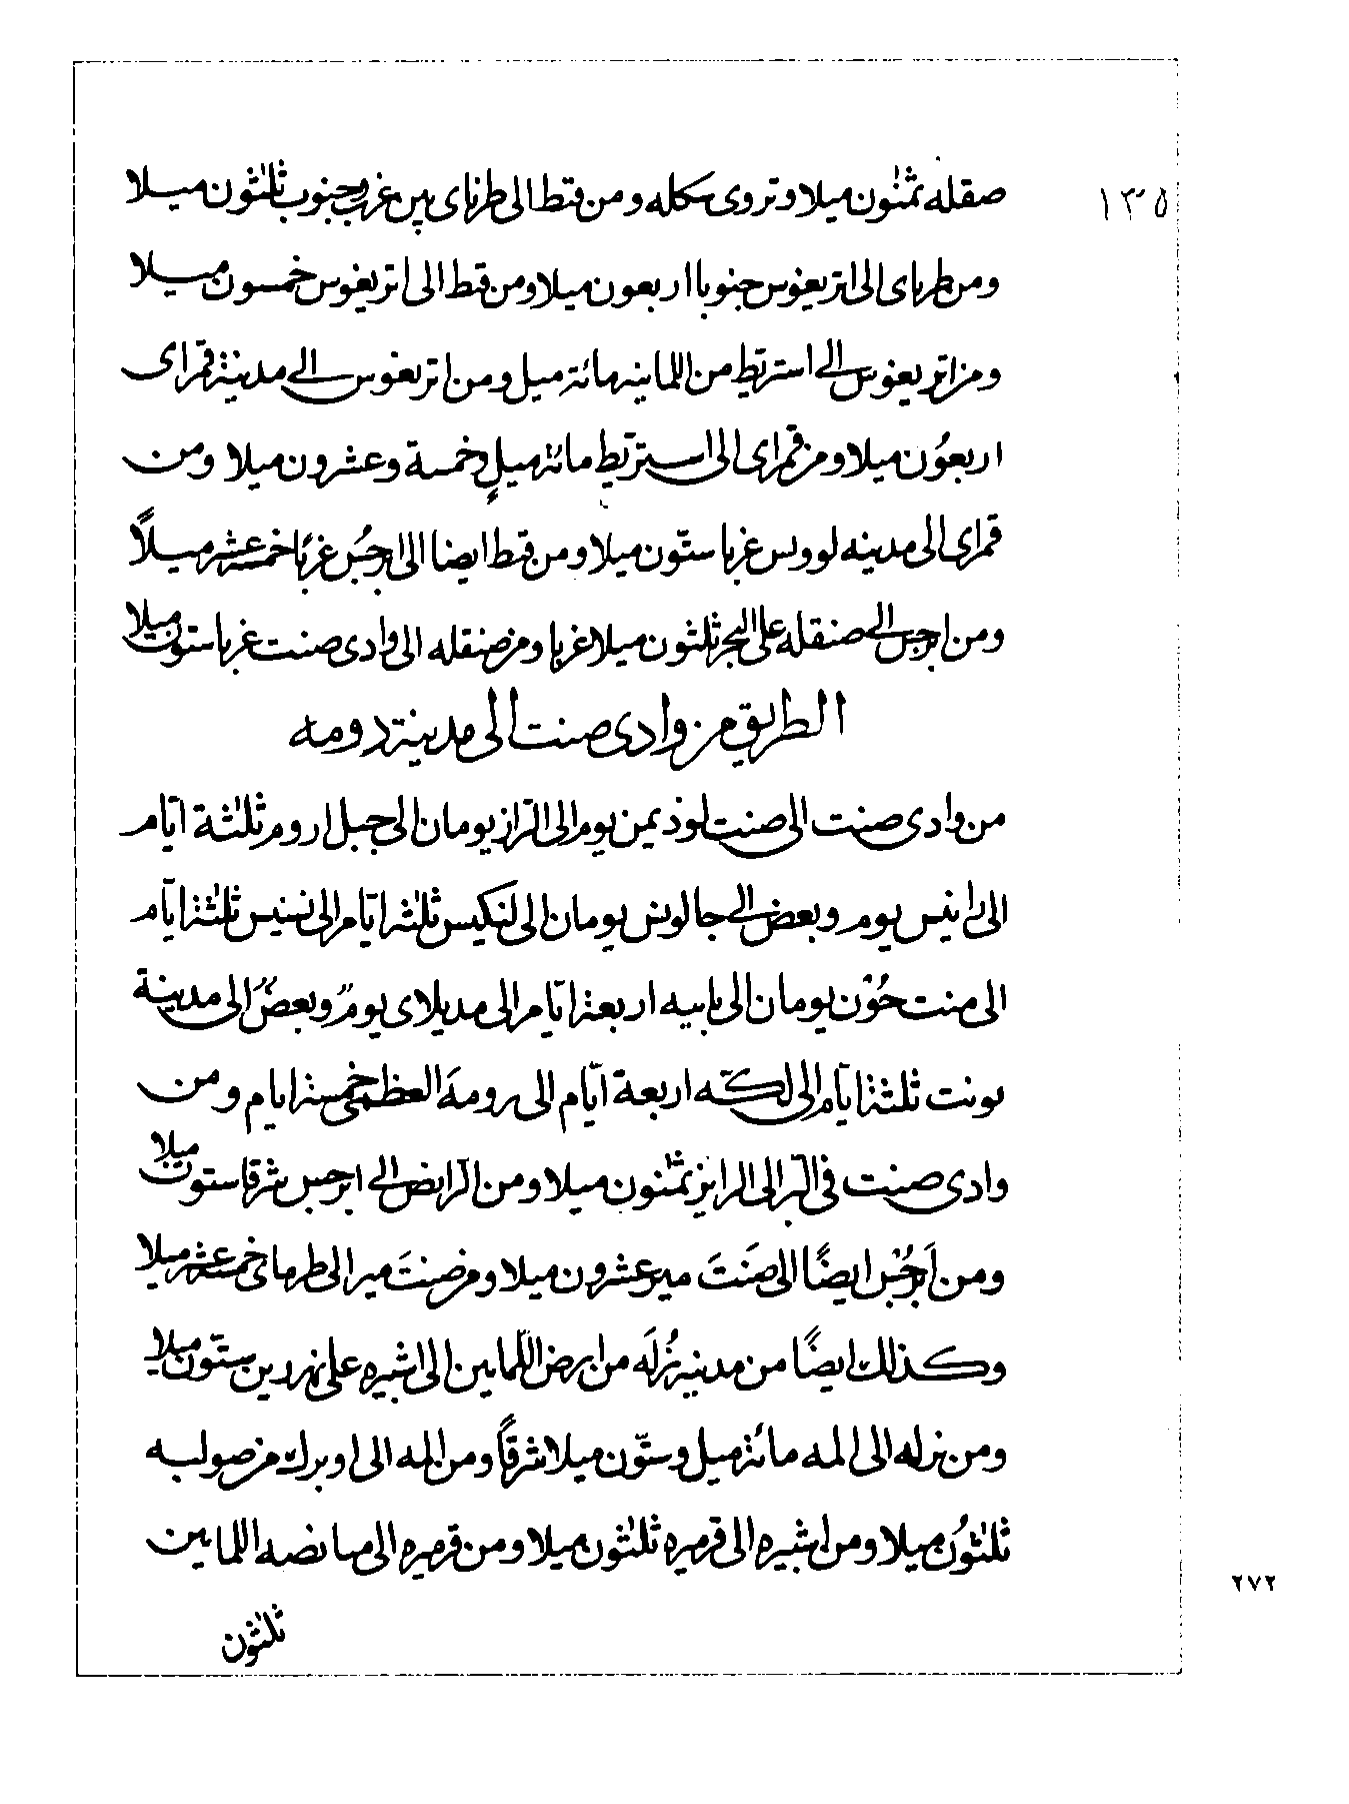 ١٣٥
صقله ثمنون ميلا وتروى سكله ومن قتطا الى طرناى بين غرب وجنوب ثلثون ميلا
ومن طرباى الى اتريغوس جنوبا اربعون ميلا ومن قتط الى اتريغوس خمسون ميلا
ومن اتريغوس الى استرتط من اللمانيه مائة ميل ومن اتريغوس الى مدينة قمراى
اربعون ميلا ومن قمراى الى استرتط مائة ميل وخمسة وعشرون ميلا ومن
قمراى الى مدينه لووس غربا ستون ميلا ومن قتط ايضا الى ابرجس غربا خمسة عشر ميلا
ومن ابرجس الى صنقله على البحر ثلثون ميلا غربا ومن صنقله الى وادى صنت غربا ستون ميلا
الطريق من وادى صنت الى مدينة رومه
من وادى صنت الى صنت لوذيمن يوم الى الراز يومان الى جبل اروم ثلثة ايام
الى رانيس يوم وبعض الى جالونس يومان الى لنكيس ثلثة ايام الى نسنيس ثلثة ايام
الى منت حون يومان الى بابيه اربعة ايام الى مديلاى يوم وبعض الى مدينة
بونت ثلثة ايام الى لكة اربعة ايام الى رومة العظمى خمسة ايام ومن
وادى صنت فى البر الى الرايز ثمنون ميلا ومن الرايض الى ابرجس شرقا ستون ميلا
ومن ابرجس ايضا الى صنت مير عشرون ميلا ومن صنت مير الى طرماى خمسة عشر ميلا
وكذلك ايضا من مدينة بزله من ارض اللمانين الى اشيره على نهر رين ستون ميلا
ومن بزله الى المه مائة ميل وستون ميلا شرقا ومن المه الى اوبرك من صوابه
ثلثون ميلا ومن اشيره الى قرميره ثلثون ميلا ومن قرميره الى مانصه اللمانين
ثلثون
٢٧٢